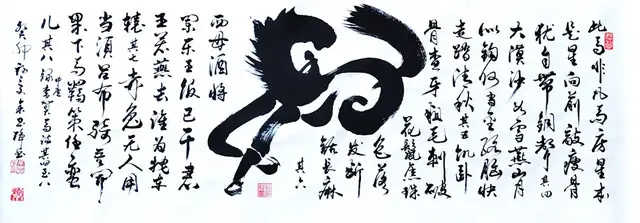 此马非凡马房星本
是星向前敲瘦骨
犹自带铜声 其四
大漠沙如雪燕山月
似钩何当金络脑快
走踏清秋 其五 饥卧
骨查牙粗毛刺破
花鬣焦珠
色落
发断
锯长麻
其六
西母酒将
阑东王饭已干君
王若燕去谁为拽车
辕 其七 赤兔无人用
当须吕布骑吾闻
果下马羁策任蛮
儿 其八 录中唐李贺马诗其四至八
癸卯